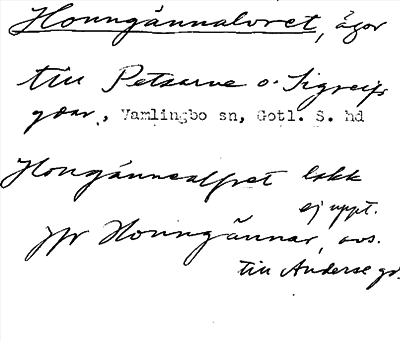 Honngännalvret, ägor
till Petsarve o. Sigreifs
gdar, Vamlingbo sn, Gotl. S. hd
Hongännealvret lokk
ej uppt.
jfr Honngännar, avs.
till Anderse gd.